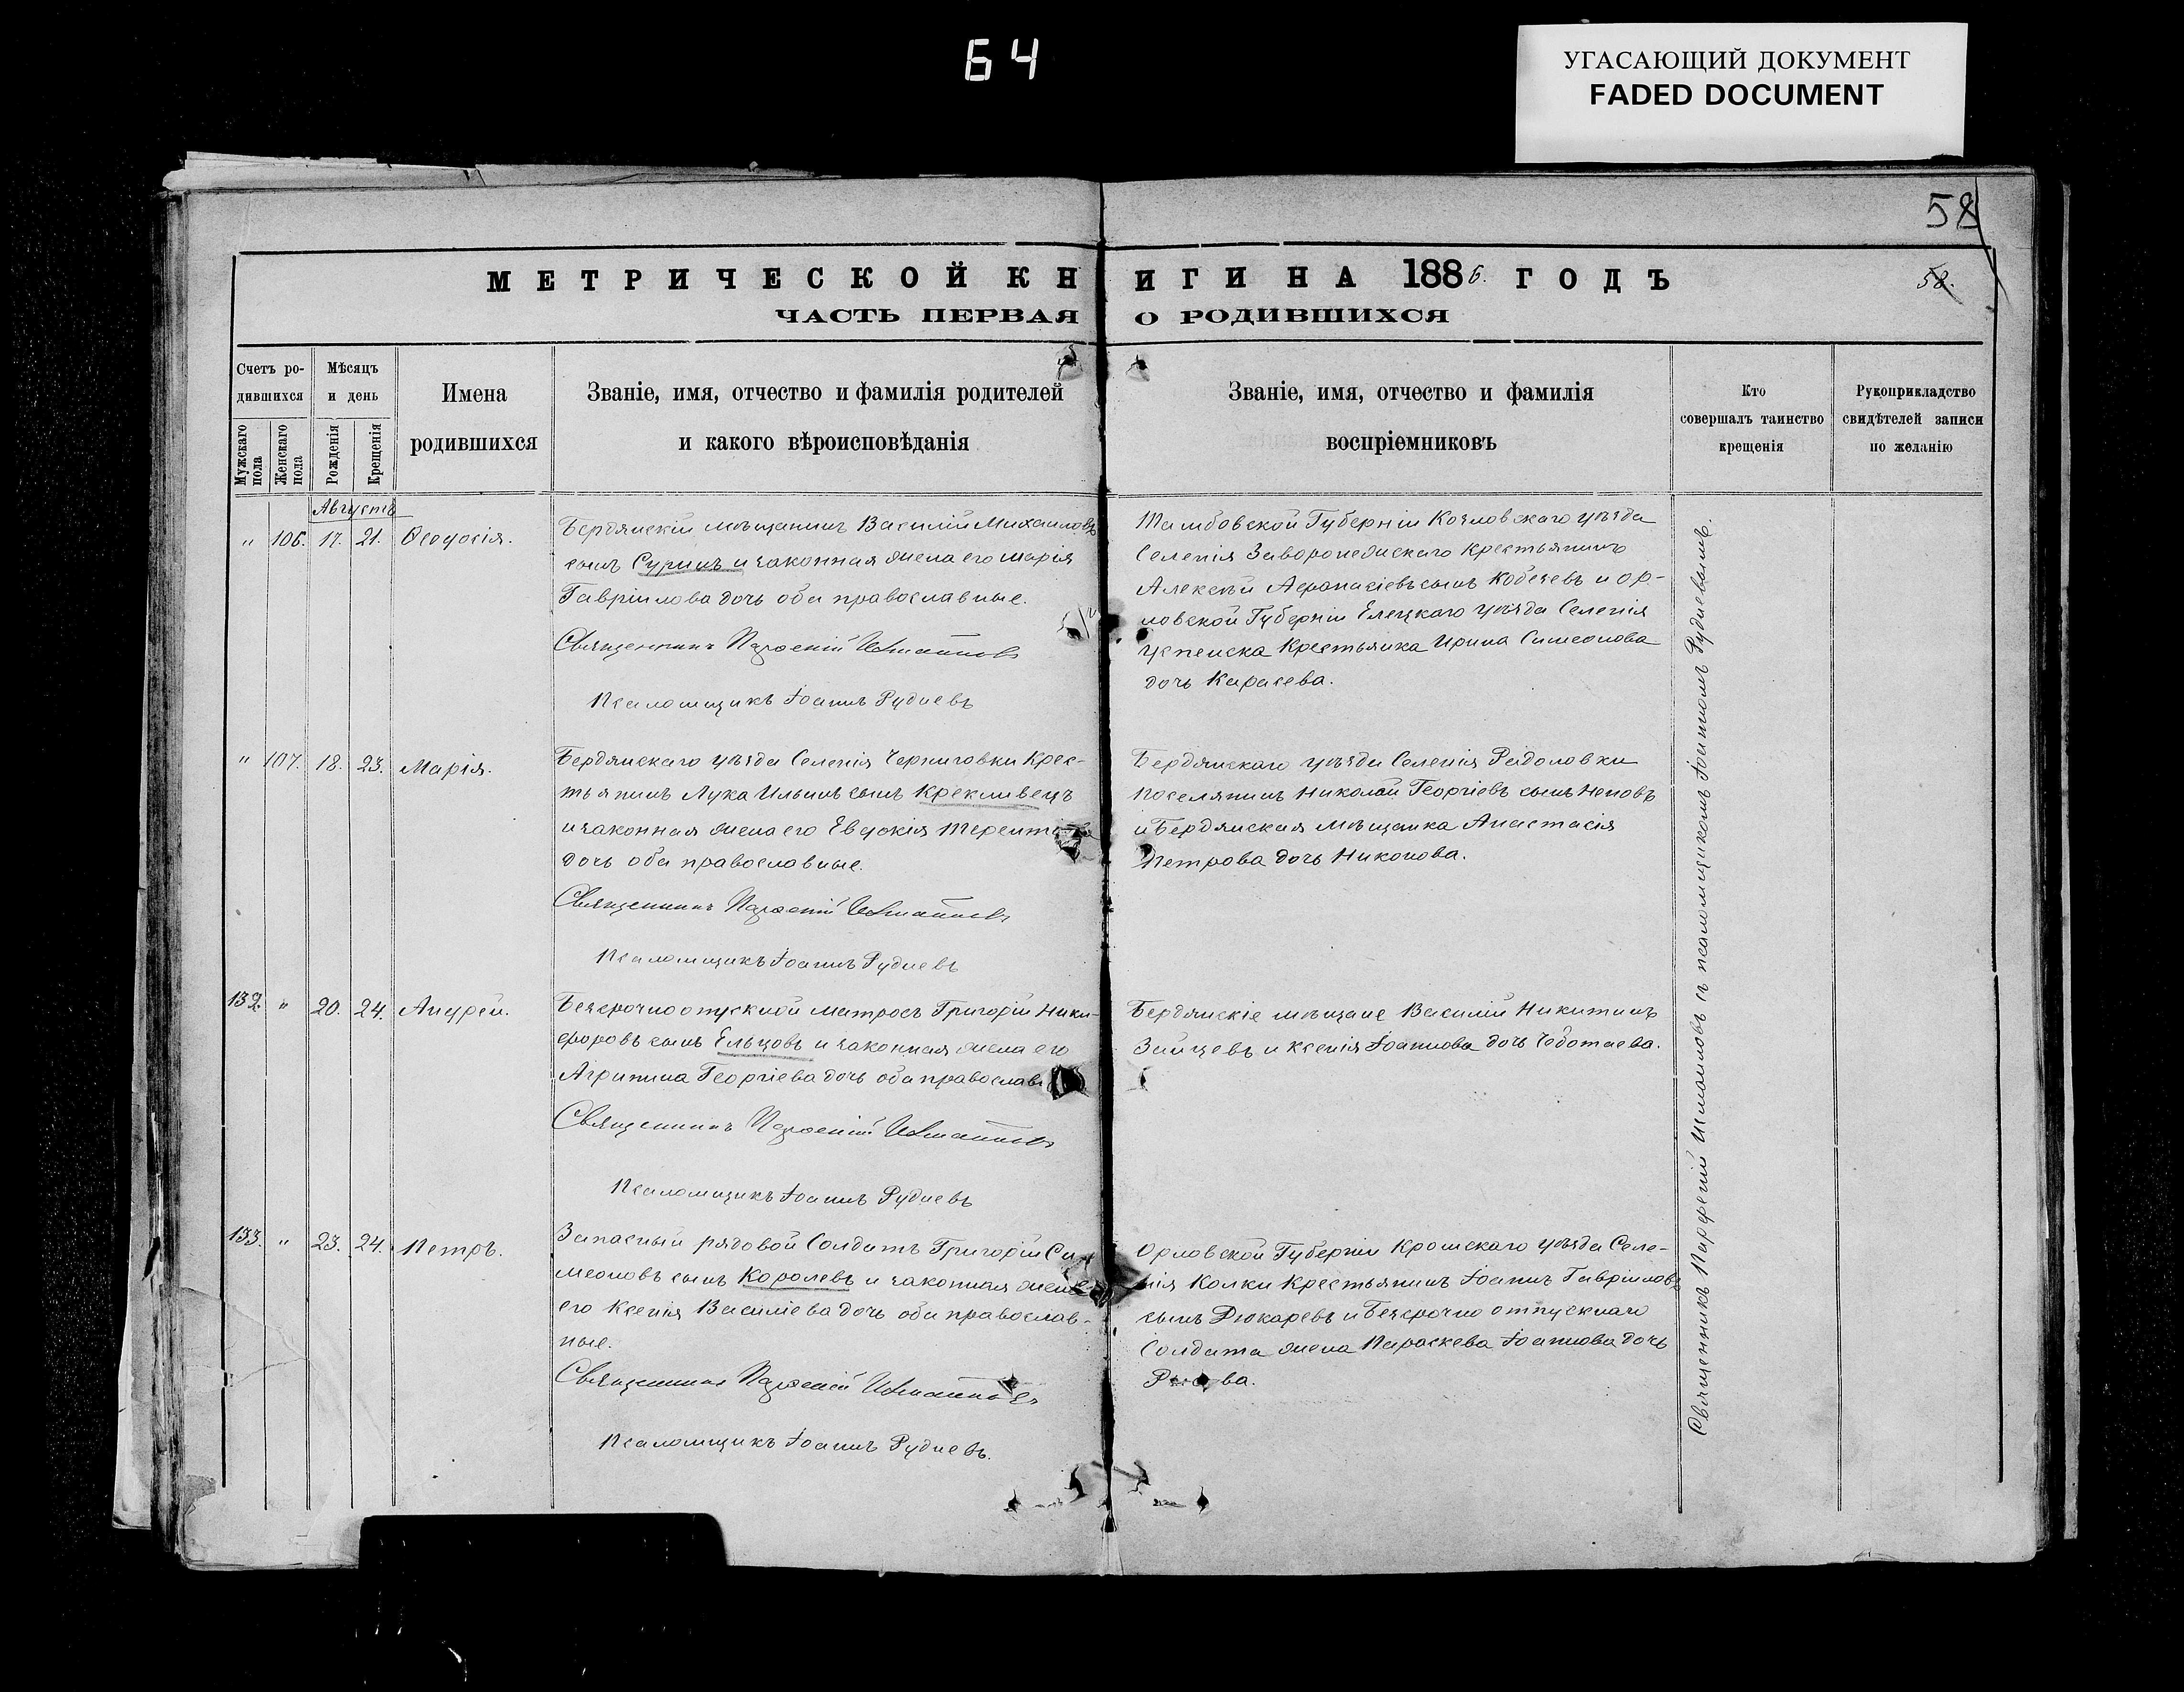 64
УГАСАЮЩИЙ ДОКУМЕНТ
FADED DOCUMENT
58
МЕТРИЧЕСКОЙ КНИГИ НА 1886. ГОДЪ
58.
ЧАСТЬ ПЕРВАЯ О РОДИВШИХСЯ
Счетъ ро-
дившихся
Мужскаго пола
Женскаго пола
Мѣсяцъ
и день
Рожденія
Крещенія
Имена
родившихся
Званіе, имя, отчество и фамилія родителей
и какого вѣроисповѣданія
Званіе, имя, отчество и фамилія
воспріемниковъ
Кто
совершалъ таинство
крещенія
Рукоприкладство
свидѣтелей записи
по желанію
Августъ
" 106. 17. 21. Ѳеодосія.
Бердянскій мѣщанинъ Василій Михаиловъ
сынъ Суринъ и законная жена его Марія
Гавріилова дочь оба православные.
Священникъ Парѳеній
Псаломщикъ Іоаннъ Рудневъ
Тамбовской Губерніи Козловскаго уѣзда
Селенія Заворонежскаго Крестьянинъ
Алексѣй Афанасіевъ сынъ Кобзевъ и Ор-
ловской Губерніи Елецкаго уѣзда Селенія
Крестьянка Ирина Симеонова
дочь Карасева.
" 107. 18. 23. Марія.
Бердянскаго уѣзда Селенія Черниговки Крес-
тьянинъ Лука Ильинъ сынъ Крекливецъ
и законная жена его Евдокія
дочь оба православные.
Священникъ Парѳеній
Псаломщикъ Іоаннъ Рудневъ
Бердянскаго уѣзда Селенія Радоловки
Поселянинъ Николай Георгіевъ сынъ Неновъ
и Бердянская мѣщанка Анастасія
Петрова дочь Никонова.
132. " 20. 24. Андрей.
Безсрочноотпускной матросъ Григорій Ники-
форовъ сынъ Ельцовъ и законная жена его
Агрипина Георгіева дочь оба православ
Священникъ Парѳеній
Псаломщикъ Іоаннъ Рудневъ
Бердянскіе мѣщане Василій Никитинъ
Зайцевъ и Ксенія Іоаннова дочь Чоботаева.
133. " 23. 24. Петръ.
Запасный рядовой Солдатъ Григорій Си-
меоновъ сынъ Королевъ и законная жена
его Ксенія Василіева дочь оба православ-
ные.
Священникъ Парѳеній
Псаломщикъ Іоаннъ Рудневъ.
Орловской Губерніи Кромскаго уѣзда Селе-
нія Колки Крестьянинъ Іоаннъ Гавріиловъ
сынъ Дюкаревъ и Безсрочно отпускнаго
Солдата жена Параскева Іоаннова дочь
Священникъ Парфеній съ псаломщикомъ Іоанномъ Рудневымъ.